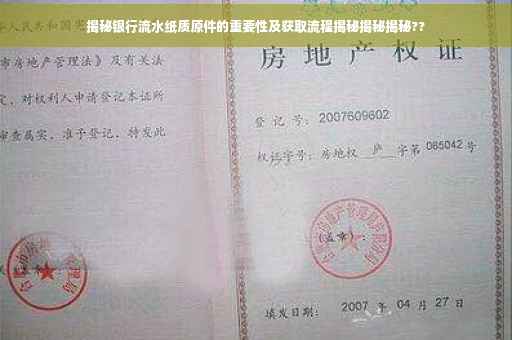 揭秘银行流水纸质原件的重要性及获取流程揭秘揭秘揭秘??
人民共和国宪
市房地产管理法》及有关法
定，对权利人申请登记本证所
审查属实，准予登记，特发此
房地产权证
登记号：2007609602
权证字号：房地权 庐 字第 085042 号
(盖章)：
填发日期： 2007 年 04 月 27 日